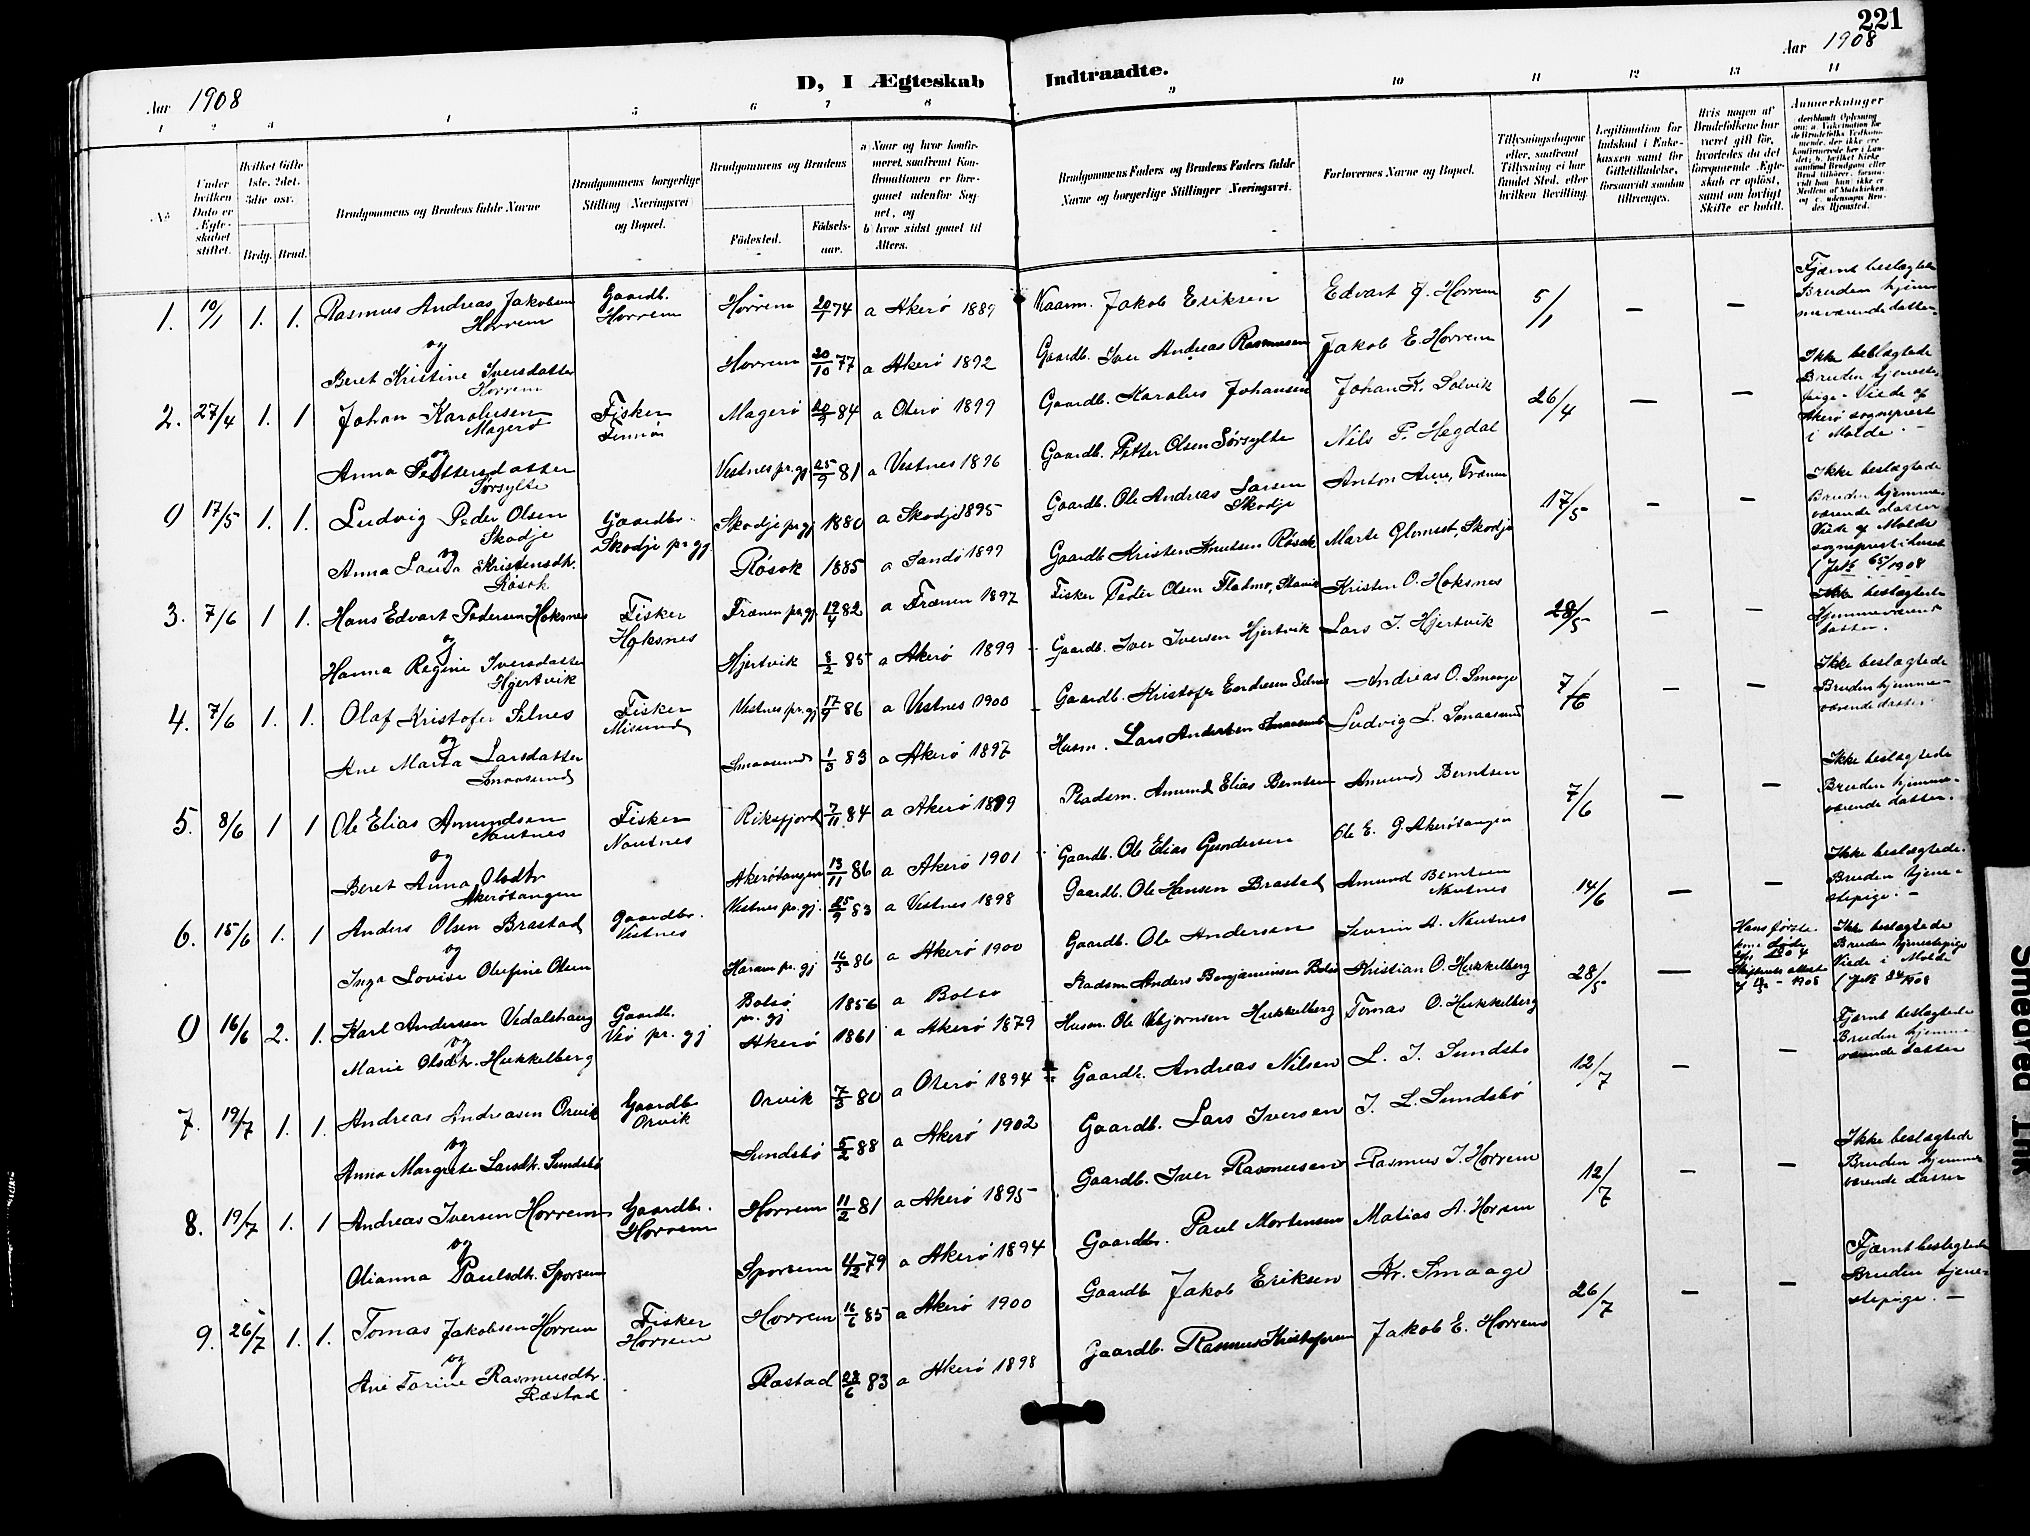 221
Aar 1908
D, I Ægteskab Indtraadte.
Aar 1908
1 2 3 4 5 6 7 8 9 10 11 12 13 14
No
Under hvilken Dato er Ægteskabet stiftet.
Hvilket Gifte 1ste, 2det, 3die osv.
Brdg. Brud.
Brudgommens og Brudens fulde Navne
Brudgommens borgerlige Stilling Næringsvei og Bopæl.
Brudgommens og Brudens
Födested. Födselsaar.
a Naar og hvor konfirmeret, saafremt Konfirmationen er foregaaet udenfor Sognet, og
b hvor sidst gaaet til Alters.
Brudgommens Faders og Brudens Faders fulde Navne og borgerlige Stillinger Næringsvei.
Forlovernes Navne og Bopæl.
Tillysningsdagene eller, saafremt Tillysning ei har fundet Sted, efter hvilken Bevilling
Legitimation for Indskud i Enkekassen samt for Giftetilladelse, forsaavidt saadan tiltrænges.
Hvis nogen af Brudefolkene har været gift før, hvorledes da det foregaaende Ægteskab er opløst, samt om lovligt Skifte er holdt.
Anmerkninger
1. 10/1 1. 1. Rasmus Andreas Jakobsen Horrem Gaardb. Horrem Horrem 20/1 74 a Akerö 1889 Kaarm. Jakob Eriksen Edvart J. Horrem 5/1 — — Fjærnt beslegtede Bruden hjemmeværende datter
og
Beret Kristine Iversdatter Horrem Horrem 30/10 77 a Akerö 1892 Gaardb. Iver Andreas Rasmussen Jakob E. Horrem
2. 27/4 1. 1 Johan Karolusen Magerö Fisker Finnöi Magerö 84 a Oterö 1899 Gaardb. Karolus Johansen Johan K. Solvik 26/4 — — Ikke beslægtede Bruden tjenestepige - Viede af Akerö sogneprest i Molde. -
og
Anna Pettersdatter Sörsylte Vestnes pr.gj 25/9 81 a Vestnes 1896 Gaardb. Petter Olsen Sörsylte Nils P. Hegdal
0 17/5 1. 1. Ludvig Peder Olsen Skodje Gaardbr. Skodje pr gj Skodje pr.gj 1880 a Skodje 1895 Gaardb. Ole Andreas Larsen Skodje Anton Aure, Frænen 17/5 — — Ikke beslegtede Bruden hjemmeværende datter Viede af Molde sogneprest i huset
og
Anna Laura Kristensdtr. Rösok Rösok 1885 a Sandö 1899 Gaardb Kristen Knutsen Rösok Marte Glomset, Skodje
3. 7/6 1 1. Hans Edvart Pedersen Hoksnes Fisker Hoksnes Frænen pr.gj 19/4 82 a Frænen 1897 Fisker Peder Olsen Flatmo, Stavik Kristen O. Hoksnes 28/5 — — Ikke beslegtede Hjemmeværende datter.
og
Hanna Regine Iversdatter Hjertvik Hjertvik 8/2 85 a Akerö 1899 Gaardb. Iver Iversen Hjertvik Lars I. Hjertvik
4. 7/6 1. 1. Olaf Kristofer Silnes Fisker Misund Vestnes pr.gj 17/9 86 a Vestnes 1900 Gaardb. Kristofer Endresen Silnes Andreas O. Smaage 7/6 — — Ikke beslegtede Bruden hjemmeværende datter
og
Ane Marta Larsdatter Smaasund Smaasund 1/3 83 a Akerö 1897 Husm. Lars Andersen Smaasund Ludvig L. Smaasund
5. 8/6 1 1 Ole Elias Amundsen Nautnes Fisker Nautnes Riksfjord 7/11 84 a Akerö 1899 Pladsm. Amund Elias Berntsen Amund Berntsen 7/6 — — Ikke beslægtede Bruden hjemmeværende datter.
og
Beret Anna Olsdtr Akerötangen Akerötangen 13/11 86 a Akerö 1901 Gaardb. Ole Elias Gundersen Ole E. G. Akerötangen
6. 15/6 1. 1 Anders Olsen Brastad Gaardbr. Vestnes Vestnes pr.gj. 25/9 83 a Vestnes 1898 Gaardb. Ole Hansen Brastad Amund Berntsen Nautnes 14/6 — — Ikke beslegtede. Bruden tjenestepige. -
og
Inga Lovise Olufine Olsen Haram pr. gj 16/5 86 a Akerö 1900 Gaardb. Ole Andersen Severin A. Nautnes
0 16/6 2. 1. Karl Andersen Vedalshaug Gaardb. Veö pr. gj Bolsö pr. gj 1856 a Bolsö Pladsm. Anders Benjaminsen Bolsö Kristian O. Hukkelberg 28/5 — Hans förste Ikke beslegtede Bruden tjenestepige Viede i Molde
og
Marie Olsdtr. Hukkelberg Akerö 1861 a Akerö 1879 Husm. Ole Kbjornsen Hukkelberg Tomas O. Hukkelberg
7. 19/7 1. 1. Andreas Andreasen Orvik Gaardb Orvik Orvik 7/3 80 a Oterö 1894 Gaardb. Andreas Nilsen L. I. Sundsbö 12/7 — — Fjærnt beslegtede Bruden hjemmeværende datter
og
Anna Margrete Larsdtr. Sundsbö Sundsbö 5/2 88 a Akerö 1902 Gaardb. Lars Iversen I. L. Sundsbö
8. 19/7 1. 1 Andreas Iversen Horrem Gaardbr. Horrem Horrem 11/2 81 a Akerö 1895 Gaardb. Iver Rasmussen Rasmus I. Horrem 12/7 — — Ikke beslægtede Bruden hjemmeværende datter
og
Olianna Paulsdtr. Sporsem Sporsem 79 a Akerö 1894 Gaardbr. Paul Mortensen Matias A. Horrem
9. 26/7 1. 1. Tomas Jakobsen Horrem Fisker Horrem Horrem 16/6 85 a Akerö 1900 Gaardb Jakob Eriksen Kr. Smaage 26/7 — — Fjærnt beslegtede Bruden tjenestepige. —
og
Ane Torine Rasmusdtr. Rastad Rastad 83 a Akerö 1898 Gaardb. Rasmus Kristofersen Jakob E. Horrem
Smeared Ink